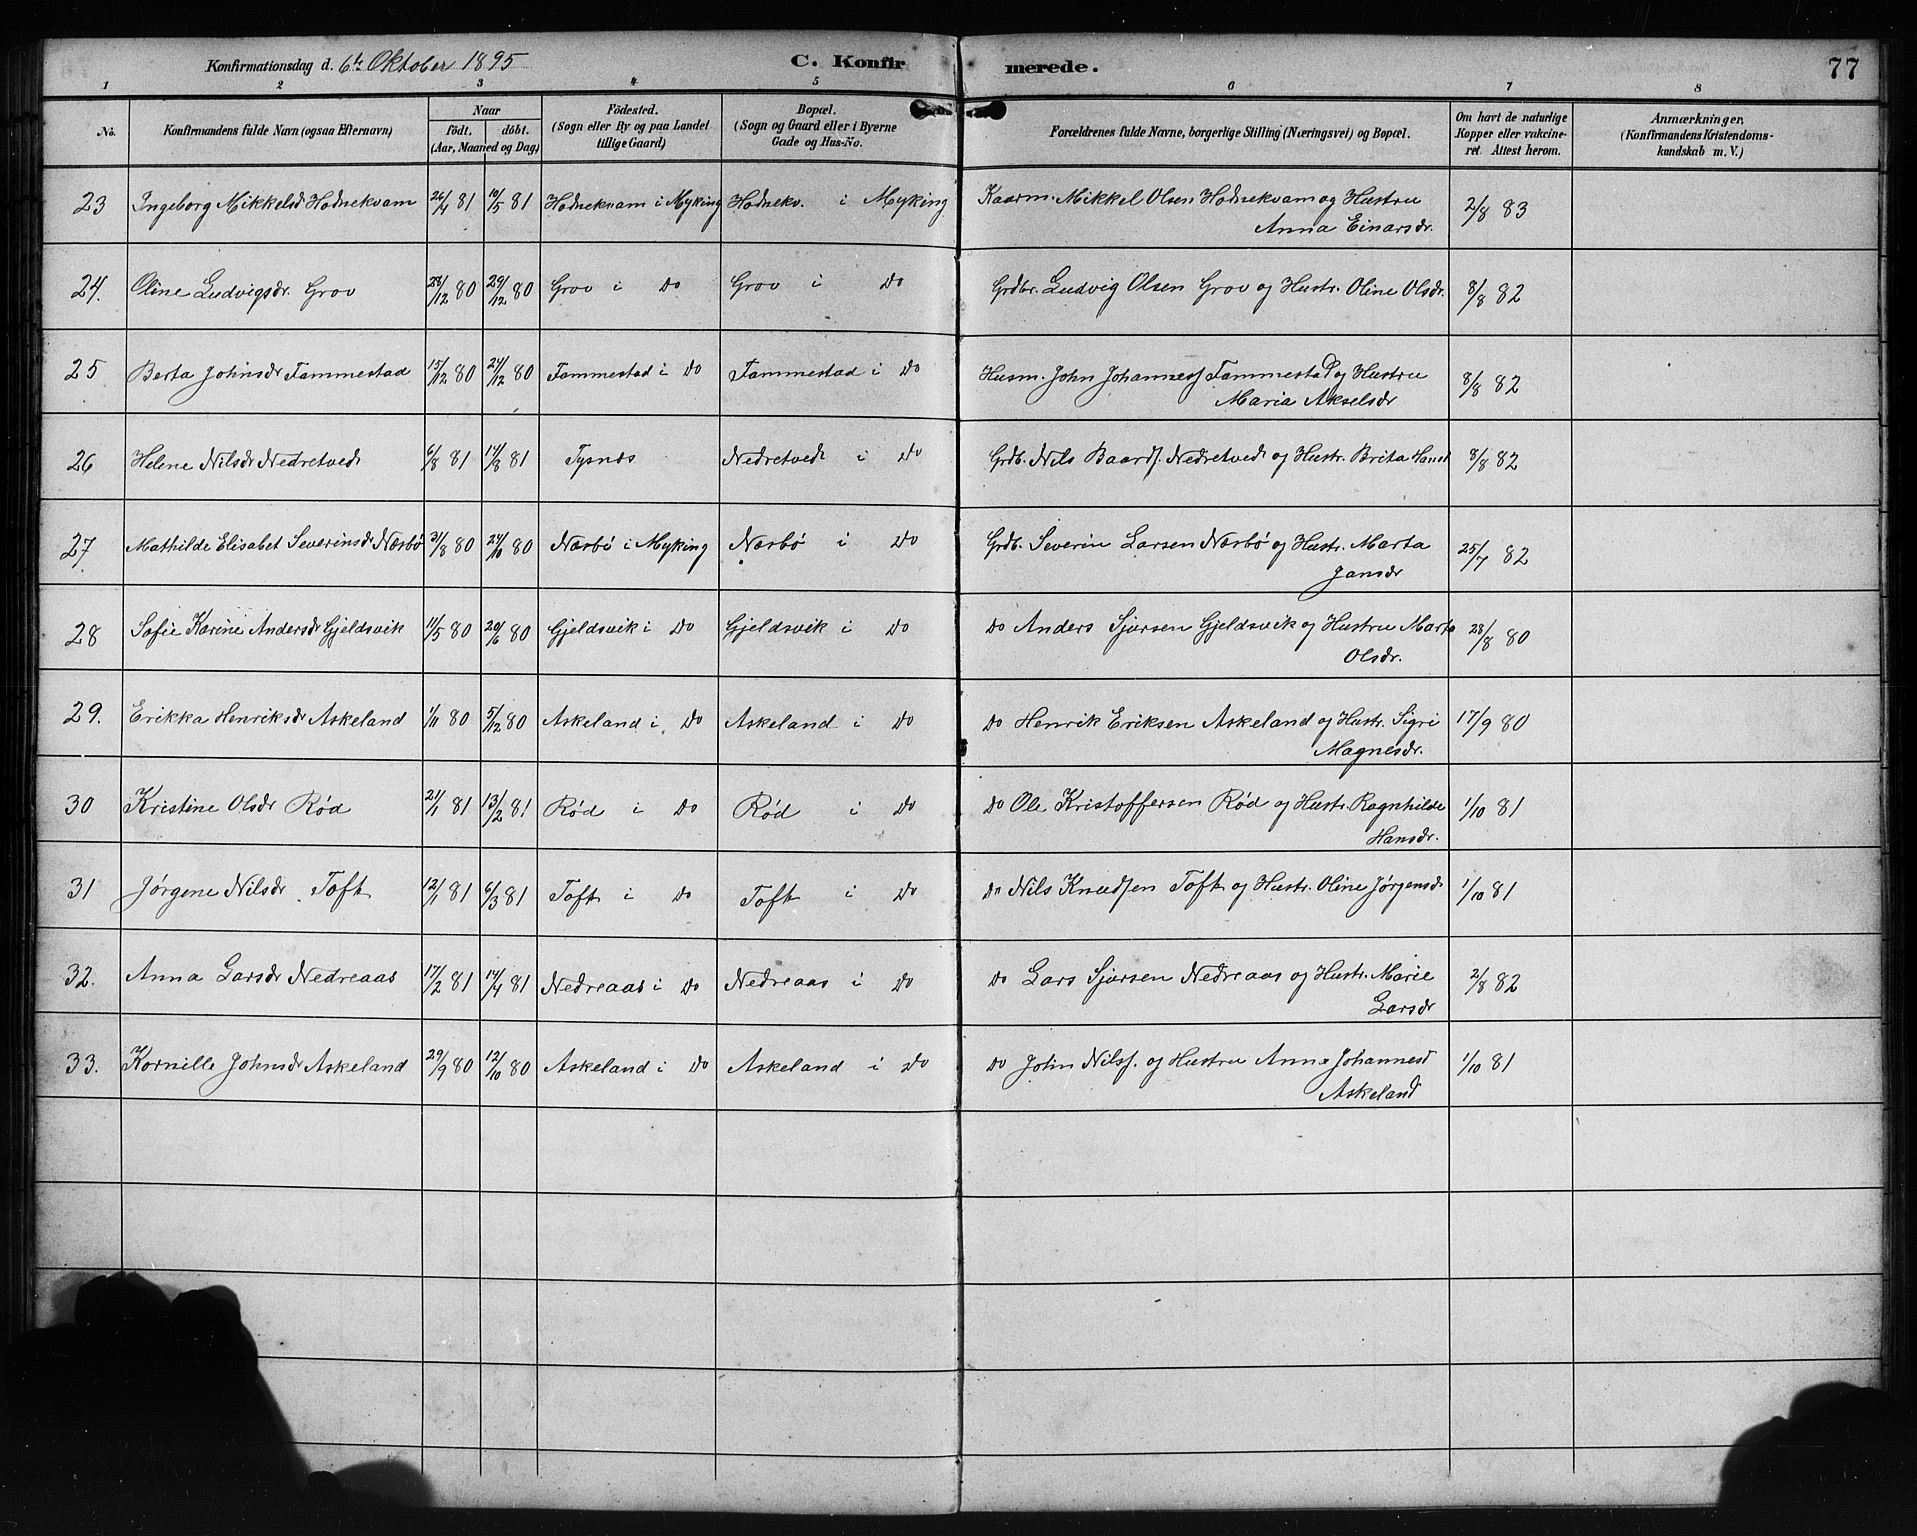 Konfirmationsdag d. 6te Oktober 1895 C. Konfirmerede. 77
1 2 3 4 5 6 7 8
No. Konfirmandens fulde Navn (ogsaa Efternavn) Naar födt. döbt. (Aar, Maaned og Dag) Födested. (Sogn eller By og paa Landet tillige Gaard) Bopæl. (Sogn og Gaard eller i Byerne Gade og Hus-No. Forældrenes fulde Navne, borgerlige Stilling (Næringsvei) og Bopæl. Om havt de naturlige Kopper eller vakcineret. Attest herom. Anmærkninger. (Konfirmandens Kristendomskundskab m. V.)
23 Ingeborg Mikkelsd Hodnekvam 26/4 81 10/5 81 Hodnekvam i Myking Hodnekv. i Myking Kaarm. Mikkel Olsen Hodnekvam og Hustru 2/8 83
Anna Einarsdr.
24. Oline Ludvigsdr. Grov 28/12 80 29/12 80 Grov i Do Grov i Do Grdbr. Ludvig Olsen Grov og Hustr. Oline Olsdr. 8/8 82
25 Berta Johnsdr Fammestad 15/12 80 24/12 80 Fammestad i Do Fammestad i Do Husm. John Johanness Fammestad og Hustru 8/8 82
Maria Akselsdr
26 Helene Nilsdr Nedretvedt 6/8 81 14/8 81 Tysnes Nedretvedt i Do Grdb. Nils Baards. Nedretvedt og Hustr. Brita Hansd 8/8 82
27. Mathilde Elisabet Severinsdr Nærbö 31/8 80 24/10 80 Nærbö i Myking Nærbö i Do Grdb. Severin Larsen Nærbö og Hustr. Marta 25/7 82
Jansdr
28 Sofie Karine Andersdr Gjeldsvik 11/5 80 20/6 80 Gjeldsvik i Do Gjeldsvik i Do Do Anders Sjursen Gjeldsvik og Hustru Marta 28/8 80
Olsdr.
29. Erikka Henriksdr Askeland 1/11 80 5/12 80 Askeland i Do Askeland i Do Do Henrik Eriksen Askeland og Hustr. Sigri 17/9 80
Magnesdr.
30 Kristine Olsdr Rød 21/1 81 13/2 81 Rød i Do Rød i Do Do Ole Kristoffersen Rød og Hustr. Ragnhilde 1/10 81
Hansdr.
31 Jørgene Nilsdr Toft 12/1 81 6/3 81 Toft i Do Toft i Do Do Nils Knudsen Toft og Hustr. Oline Jørgensdr 1/10 81
32. Anna Larsdr Nedreaas 17/2 81 14/4 81 Nedreaas i Do Nedreaas i Do Do Lars Sjursen Nedreaas og Hustr. Marie 2/8 82
Larsdr
33. Kornille Johnsdr Askeland 29/9 80 12/10 80 Askeland i Do Askeland i Do Do John Nilss. og Hustru Anna Johannesd 1/10 81
Askeland